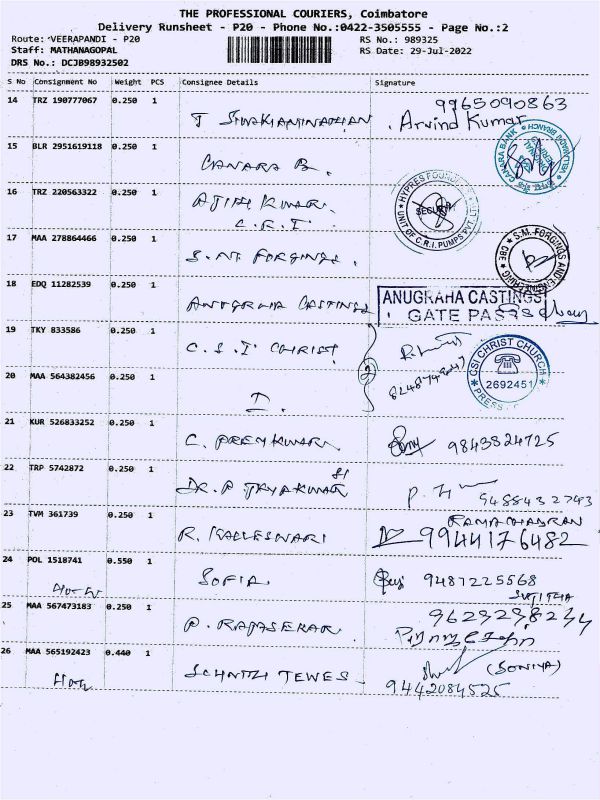 THE PROFESSIONAL COURIERS, Coimbatore
Delivery Runsheet - P20 - Phone No.:0422-3505555 - Page No.:2
Route: VEERAPANDI - P20 RS No.: 989325
Staff: MATHANAGOPAL RS Date: 29-Jul-2022
DRS No.: DCJB98932502
S No Consignment No Weight PCS Consignee Details Signature
14 TRZ 190777067 0.250 1 9965090863
Arvind Kumar
15 BLR 2951619118 0.250 1
CANARA B. CANARA BANK
16 TRZ 220563322 0.250 1 HYPRES FOUNDRY
AJITH KUMAR. SECURITY
C.R.I. UNIT OF C.R.I. PUMPS PVT. LTD
17 MAA 278864466 0.250 1 S.M. FORGINGS AND ENGINEERING CBE
S.M FORGINGS.
18 EDQ 11282539 0.250 1
ANUGRAHA CASTINGS ANUGRAHA CASTINGS
GATE PASS
19 TKY 833586 0.250 1
C.S.I CHRIST CSI CHRIST CHURCH
20 MAA 564382456 0.250 1 2 8248748047 2692451
PRESS
I.
21 KUR 526833252 0.250 1
C. PREMKUMAR 9843824725
22 TRP 5742872 0.250 1
DR. P 9488432793
23 TVM 361739 0.250 1 RAMACHADRAN
R. 9944176482
24 POL 1518741 0.550 1
SOFIA. 9487225568
SUJITHA
25 MAA 567473183 0.250 1
P. RAJASEKAR
26 MAA 565192423 0.440 1
(SONIYA)
9442084525